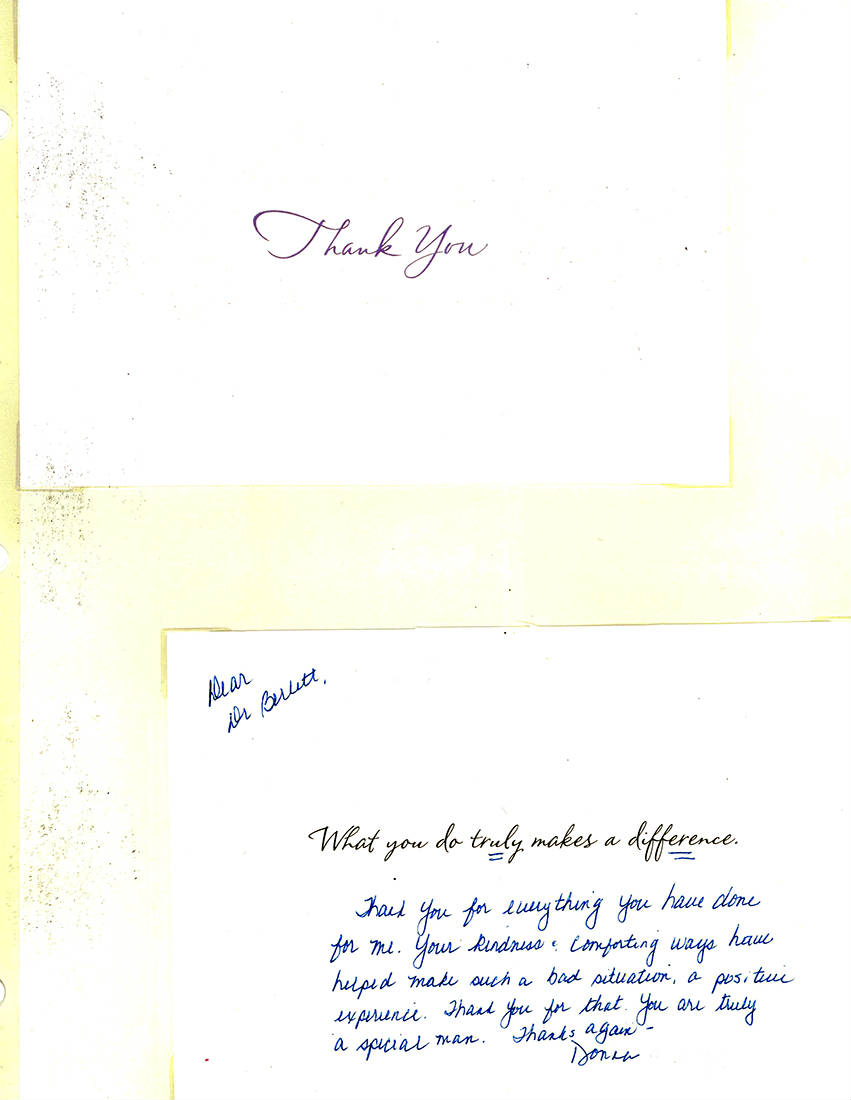 Thank You
Dear
Dr Berlett,
What you do truly makes a difference.
Thank You for everything You have done
for me. Your kindness & comforting ways have
helped make such a bad situation, a positive
experience. Thank You for that. You are truly
a special man. Thanks again –
Donna